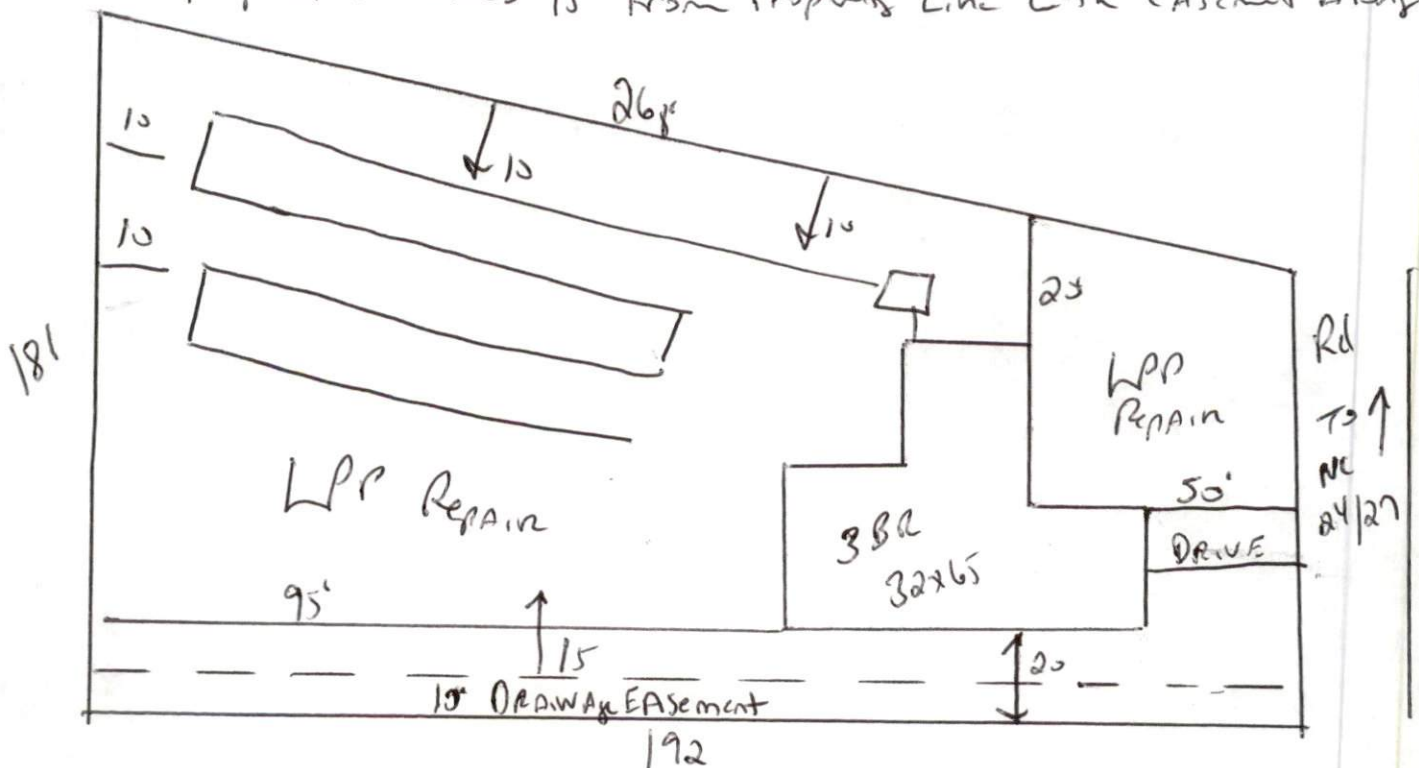 from Property Line
10
10
10
10
181
25
LPP
Repair
Rd
To
NC
24/27
50'
DRIVE
LPP Repair
3 BR
32x65
95'
15
20
10' DRAINAGE EASEment
192